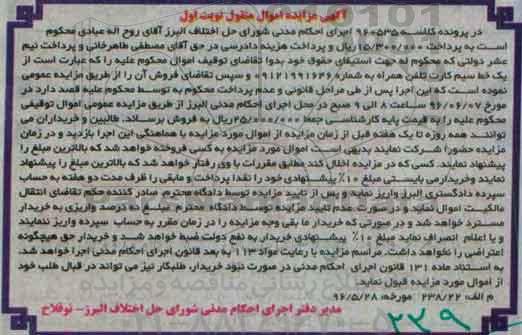 آگهی مزایده اموال منقول نوبت اول
در پرونده کلاسه ۹۶۰۵۳۵ اجرای احکام مدنی شورای حل اختلاف البرز آقای روح اله عبادی محکوم
است به پرداخت ۱۵/۳۰۰/۰۰۰ ریال و پرداخت هزینه دادرسی در حق آقای مصطفی طاهرخانی و پرداخت نیم
عشر دولتی که محکوم له جهت استیفای حقوق خود بدوا تقاضای توقیف اموال محکوم علیه را که عبارت است از
یک خط سیم کارت تلفن همراه به شماره ۰۹۱۲۱۹۹۱۶۴۶ و سپس تقاضای فروش آن را از طریق مزایده عمومی
نموده است که این اجرا پس از طی مراحل قانونی و عدم پرداخت محکوم به توسط محکوم علیه قصد دارد در
مورخ ۹۶/۰۶/۰۷ ساعت ۸ الی ۹ صبح در محل اجرای احکام مدنی البرز از طریق مزایده عمومی اموال توقیفی
محکوم علیه را به قیمت پایه کارشناسی جمعا ۲۵/۰۰۰/۰۰۰ ریال به فروش برساند. طالبین و خریداران می
توانند همه روزه تا یک هفته قبل از زمان مزایده از اموال مورد مزایده با هماهنگی این اجرا بازدید و در زمان
مزایده حضورا شرکت نمایند بدیهی است اموال مورد مزایده به کسی فروخته خواهد شد که بالاترین مبلغ را
پیشنهاد نمایند. کسی که در مزایده اخلال کند مطابق مقررات با وی رفتار خواهد شد که بالاترین مبلغ را پیشنهاد
نمایند و خریدار می بایستی مبلغ ۱۰٪ پیشنهادی خود را نقدا پرداخت و مابقی را ظرف مدت دو هفته به حساب
سپرده دادگستری البرز واریز نماید و پس از تایید مزایده توسط دادگاه محترم، صادر کننده حکم تقاضای انتقال
مالکیت اموال نماید و در صورت عدم تایید مزایده توسط دادگاه محترم مبلغ ده درصد واریزی به خریدار
مسترد خواهد شد و در صورتی که خریدار ما بقی وجه مزایده را در زمان مقرر به حساب سپرده واریز ننمایند
و یا اعلام انصراف نماید مبلغ ۱۰٪ پیشنهادی خریدار به نفع دولت ضبط خواهد شد و خریدار حق هیچگونه
اعتراضی را نخواهد داشت. مراسم مزایده با رعایت مواد ۱۱۳ به بعد قانون اجرای احکام مدنی اجرا خواهد شد.
به استناد ماده ۱۳۱ قانون اجرای احکام مدنی در صورت نبود خریدار، طلبکار نیز می تواند در قبال طلب خود
از اموال مورد مزایده قبول نماید.
م الف: ۲۳۸/۲۲ مورخه: ۹۶/۵/۲۸
مدیر دفتر اجرای احکام مدنی شورای حل اختلاف البرز- نوفلاح
۲۳۹